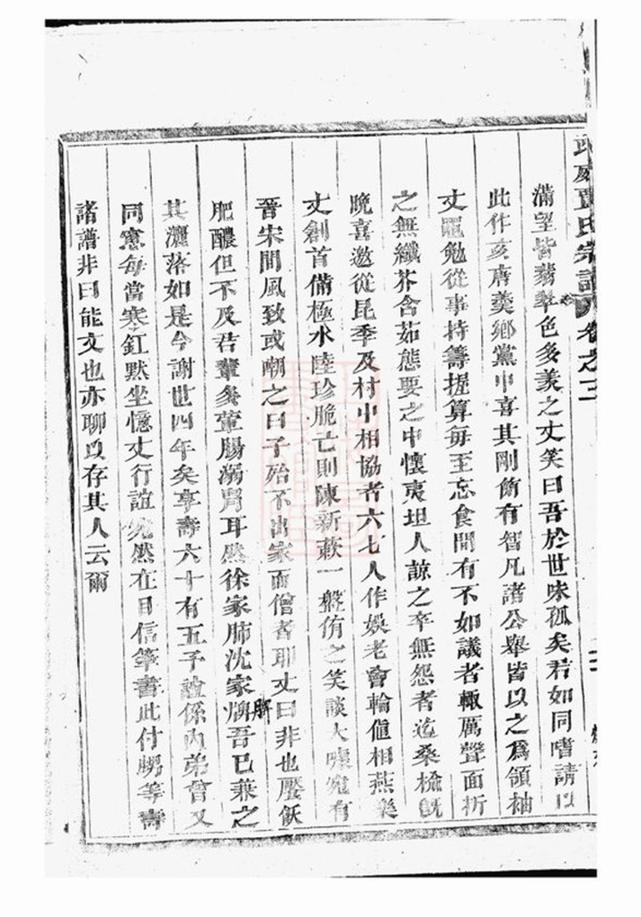 氏宗譜 卷之二
滿望皆翡翠色多羨之丈笑曰吾於世味孤矣君如同嗜請以
此作亥膚羹鄉黨中喜其剛節有智凡諸公舉皆以之為領袖
丈黽勉從事持籌握算每至忘食間有不如議者輒厲聲面折
之無纖芥含茹態要之中懷夷坦人諒之卒無怨者迄桑榆旣
晚喜邀從昆季及村中相協者六七人作娛老會輪值相燕樂
丈創首備極水陸珍脆亡則陳新蔌一盤侑之笑談大噱宛有
晉宋間風致或嘲之曰子殆不出家而僧者耶丈曰非也饜飫
肥醲但不及君輩矣葷腸溺胃耳然徐家肺沈家脾吾已兼之
其灑落如是今謝世四年矣享壽六十有五予誼係內弟會又
同窻每當寒釭默坐憶丈行誼宛然在目信筆書此付甥等壽
諸譜非曰能文也亦聊以存其人云爾